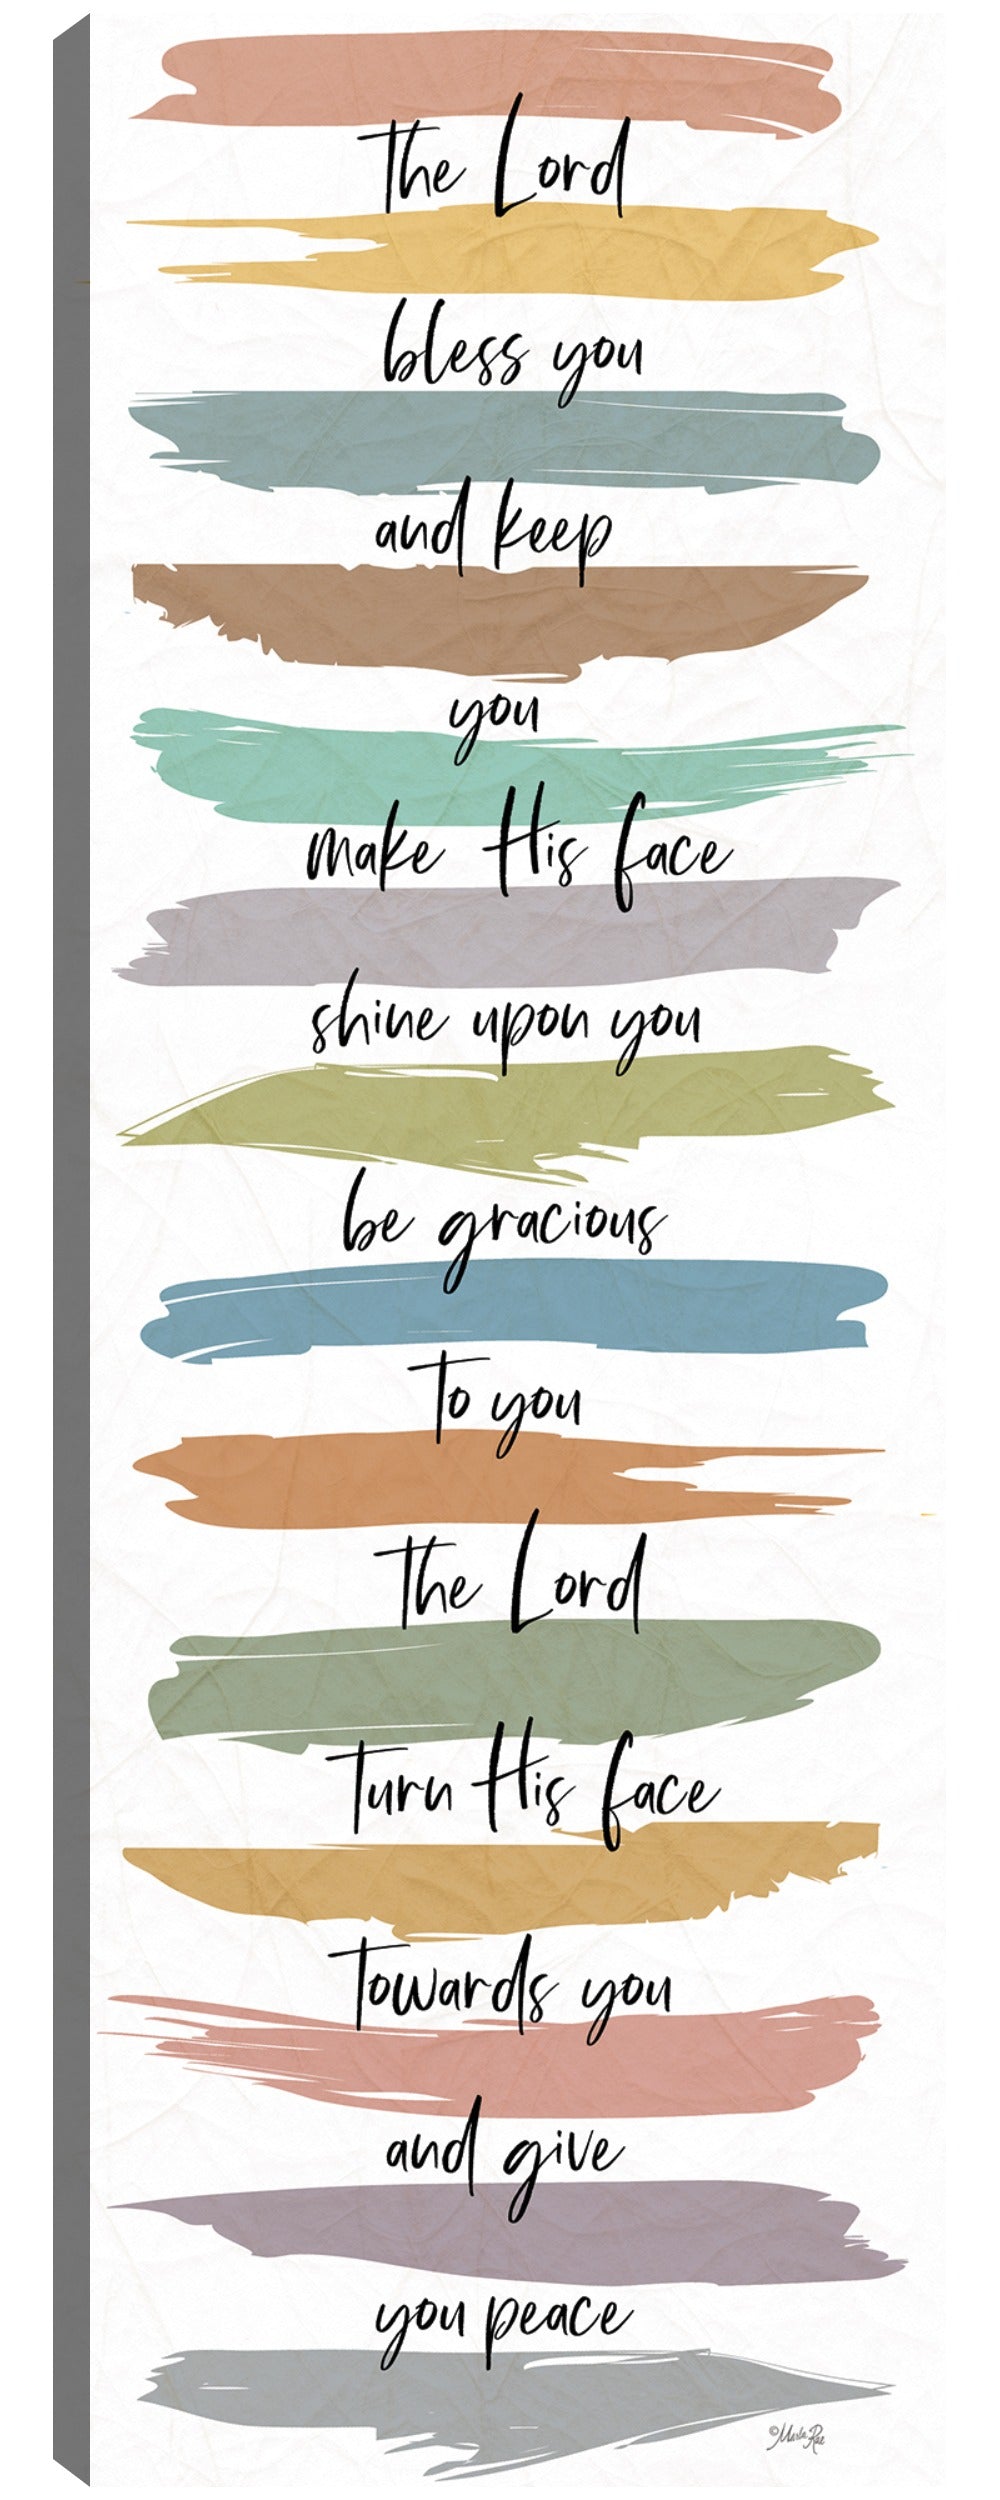 the Lord
bless you
and keep
you
make His face
shine upon you
be gracious
to you
the Lord
turn His face
towards you
and give
you peace
©Marla Rae